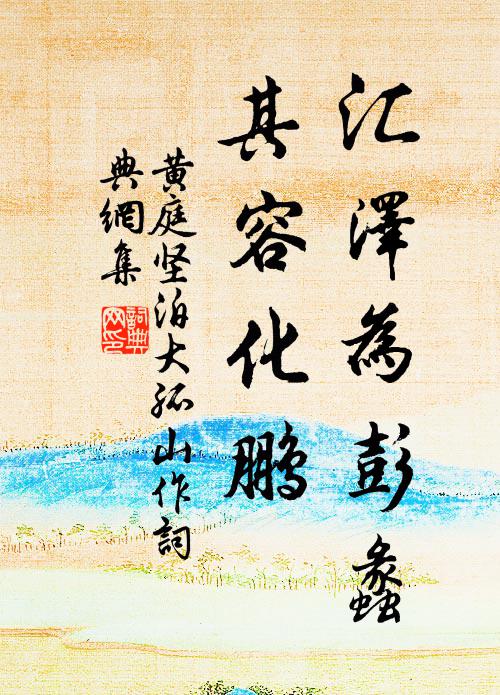 汇澤為彭蠡
其容化鵬
黄庭坚泊大孤山作詞
典網集
詞典网印